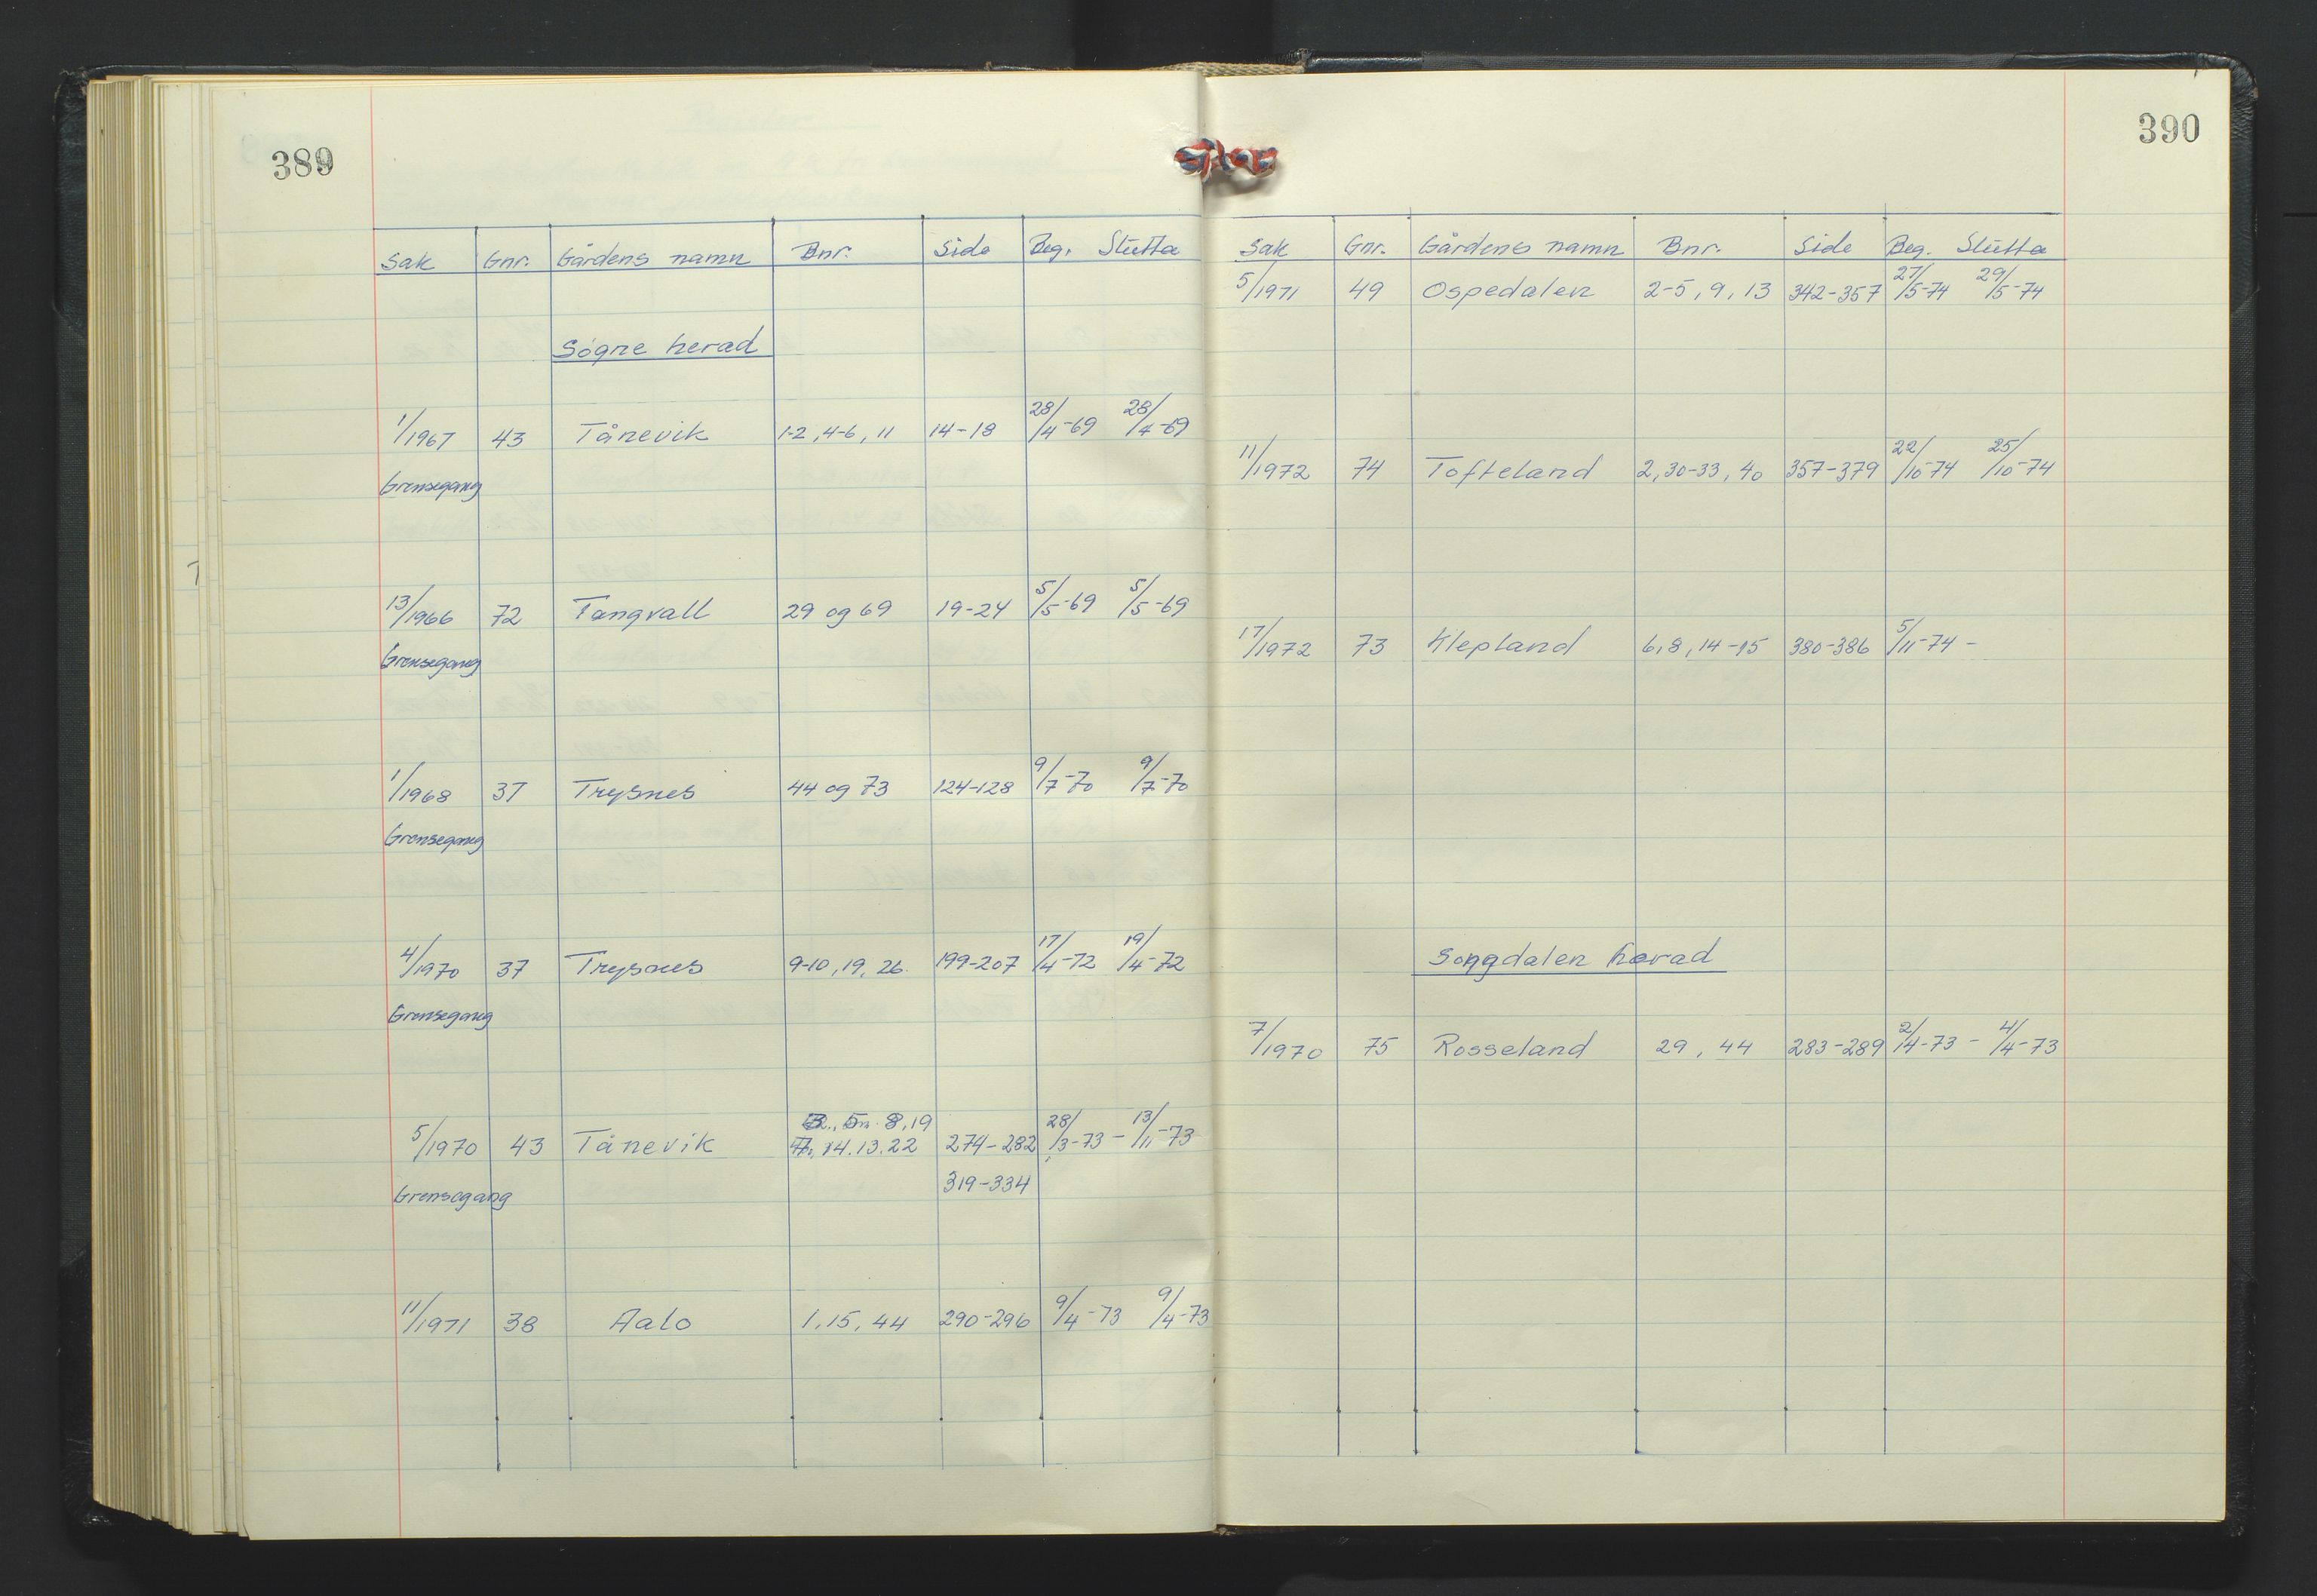 389
Sak Gnr. Gårdens namn Bnr. Side Beg. Slutta
Søgne herad
1/1967 43 Tånevik 1-2, 4-6, 11 14-18 28/4-69 28/4-69
Grensegang
13/1966 72 Tangvall 29 og 69 19-24 5/5-69 5/5-69
Grensegang
1/1968 37 Trysnes 44 og 73 124-128 9/7-70 9/7-70
Grensegang
4/1970 37 Trysnes 9-10, 19, 26. 199-207 17/4-72 19/4-72
Grensegang
8, 19
5/1970 43 Tånevik 14. 13. 22 274-282 28/3-73 - 13/11-73
Grensegang 319-334
11/1971 38 Aalo 1, 15, 44 290-296 9/4-73 9/4-73
390
Sak Gnr. Gårdens namn Bnr. Side Beg. Slutta
5/1971 49 Ospedalen 2-5, 9, 13 342-357 27/5-74 29/5-74
11/1972 74 Tofteland 2, 30-33, 40 357-379 22/10-74 25/10-74
17/1972 73 Klepland 6, 8, 14-15 380-386 5/11-74 -
Songdalen herad
7/1970 75 Rosseland 29, 44 283-289 2/4-73 - 4/4-73